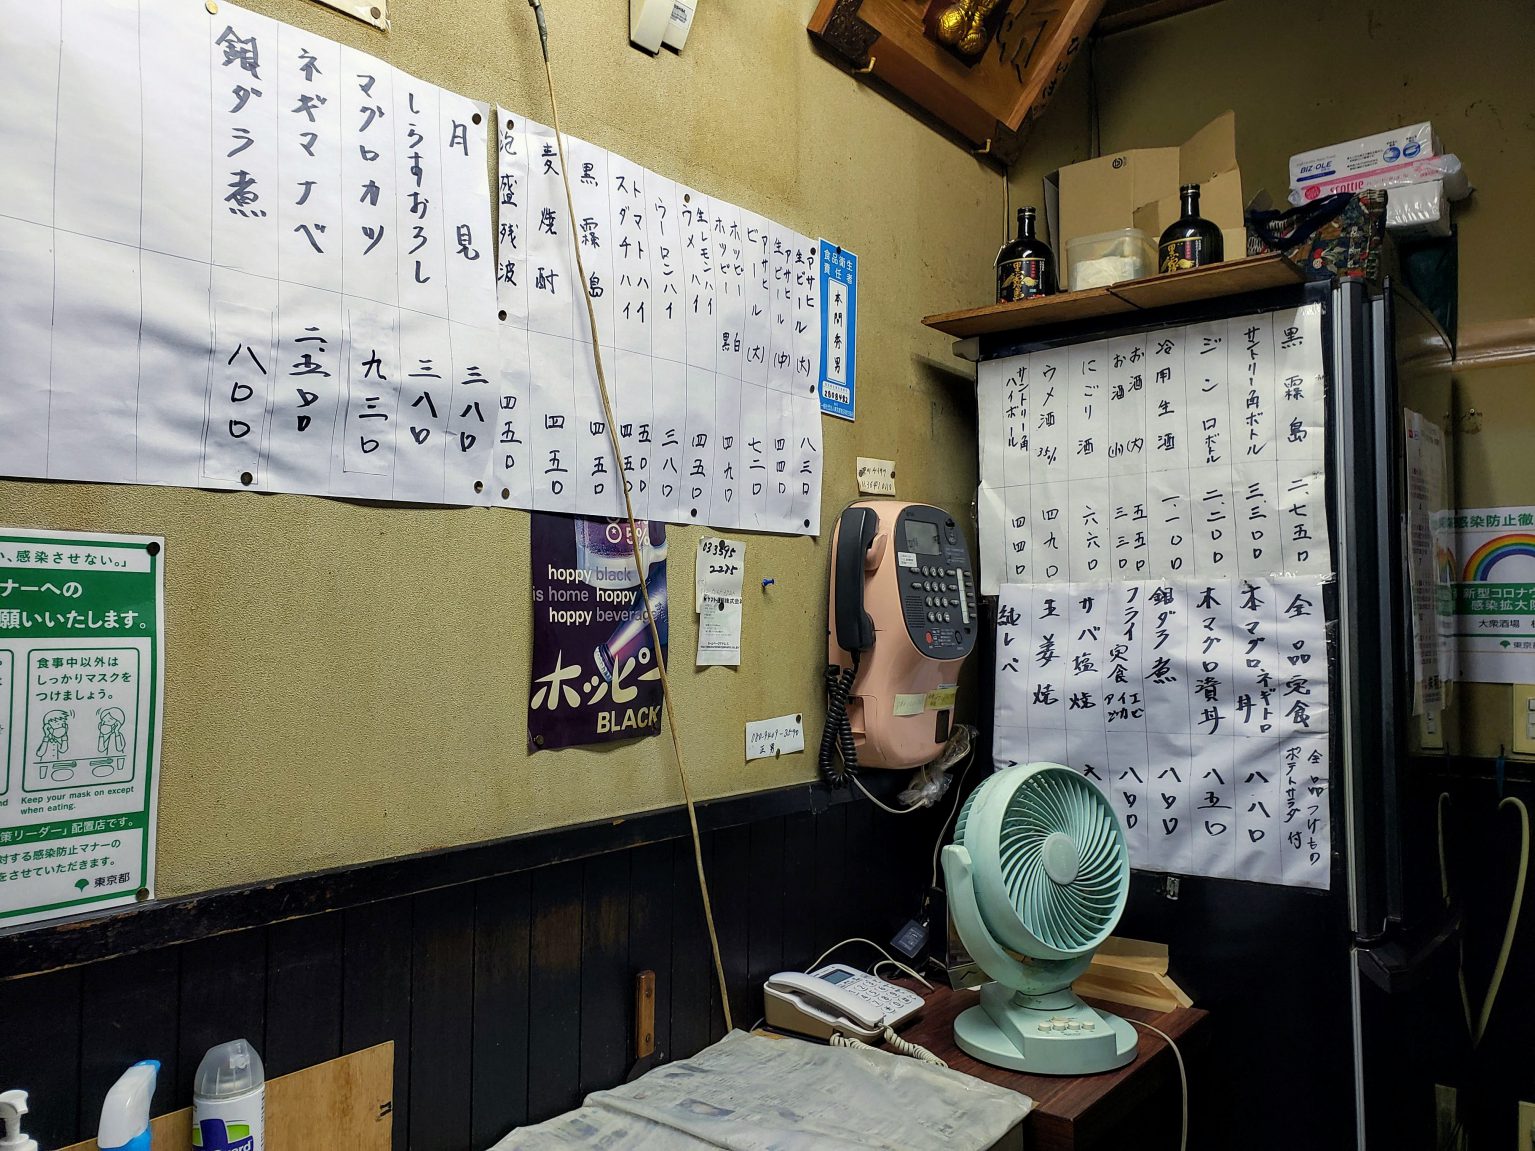 月見 三八〇
しらすおろし 三八〇
マグロカツ 九三〇
ネギマナベ 二、五〇〇
銀ダラ煮 八〇〇
アサヒ生ビール(大) 八三〇
アサヒ生ビール(中) 四四〇
アサヒビール(大) 七二〇
ホッピー白
ホッピー黒 四九〇
生レモンハイ
ウメハイ 四五〇
ウーロンハイ 三八〇
トマトハイ 五〇〇
スダチハイ 四五〇
黒霧島 四五〇
麦焼酎 四五〇
泡盛残波 四五〇
食品衛生
責任者
黒霧島 二、七五〇
サントリー角ボトル 三、三〇〇
ジンロボトル 二二〇〇
冷用生酒 一、一〇〇
お酒(大) 五五〇
お酒(小) 三三〇
にごり酒 六六〇
ウメ酒 四九〇
サントリー角
ハイボール 四四〇
全品定食 全品つけもの
ポテトサラダ付
本マグロネギトロ丼 八八〇
本マグロ漬丼 八五〇
銀ダラ煮 八〇〇
フライ定食 エビ イカ アジ 八〇〇
サバ塩焼
生姜焼
純レバ
5%
hoppy black
is home hoppy
hoppy beverage
ホッピー
BLACK
033595
2235
BIZ・OLE
scottie
黒霧島
、感染させない。」
マナーへの
願いいたします。
食事中以外は
しっかりマスクを
つけましょう。
Keep your mask on except
when eating.
策リーダー」配置店です。
対する感染防止マナーの
をさせていただきます。
東京都
感染防止徹
新型コロナウ
感染拡大
大衆酒場
東京都